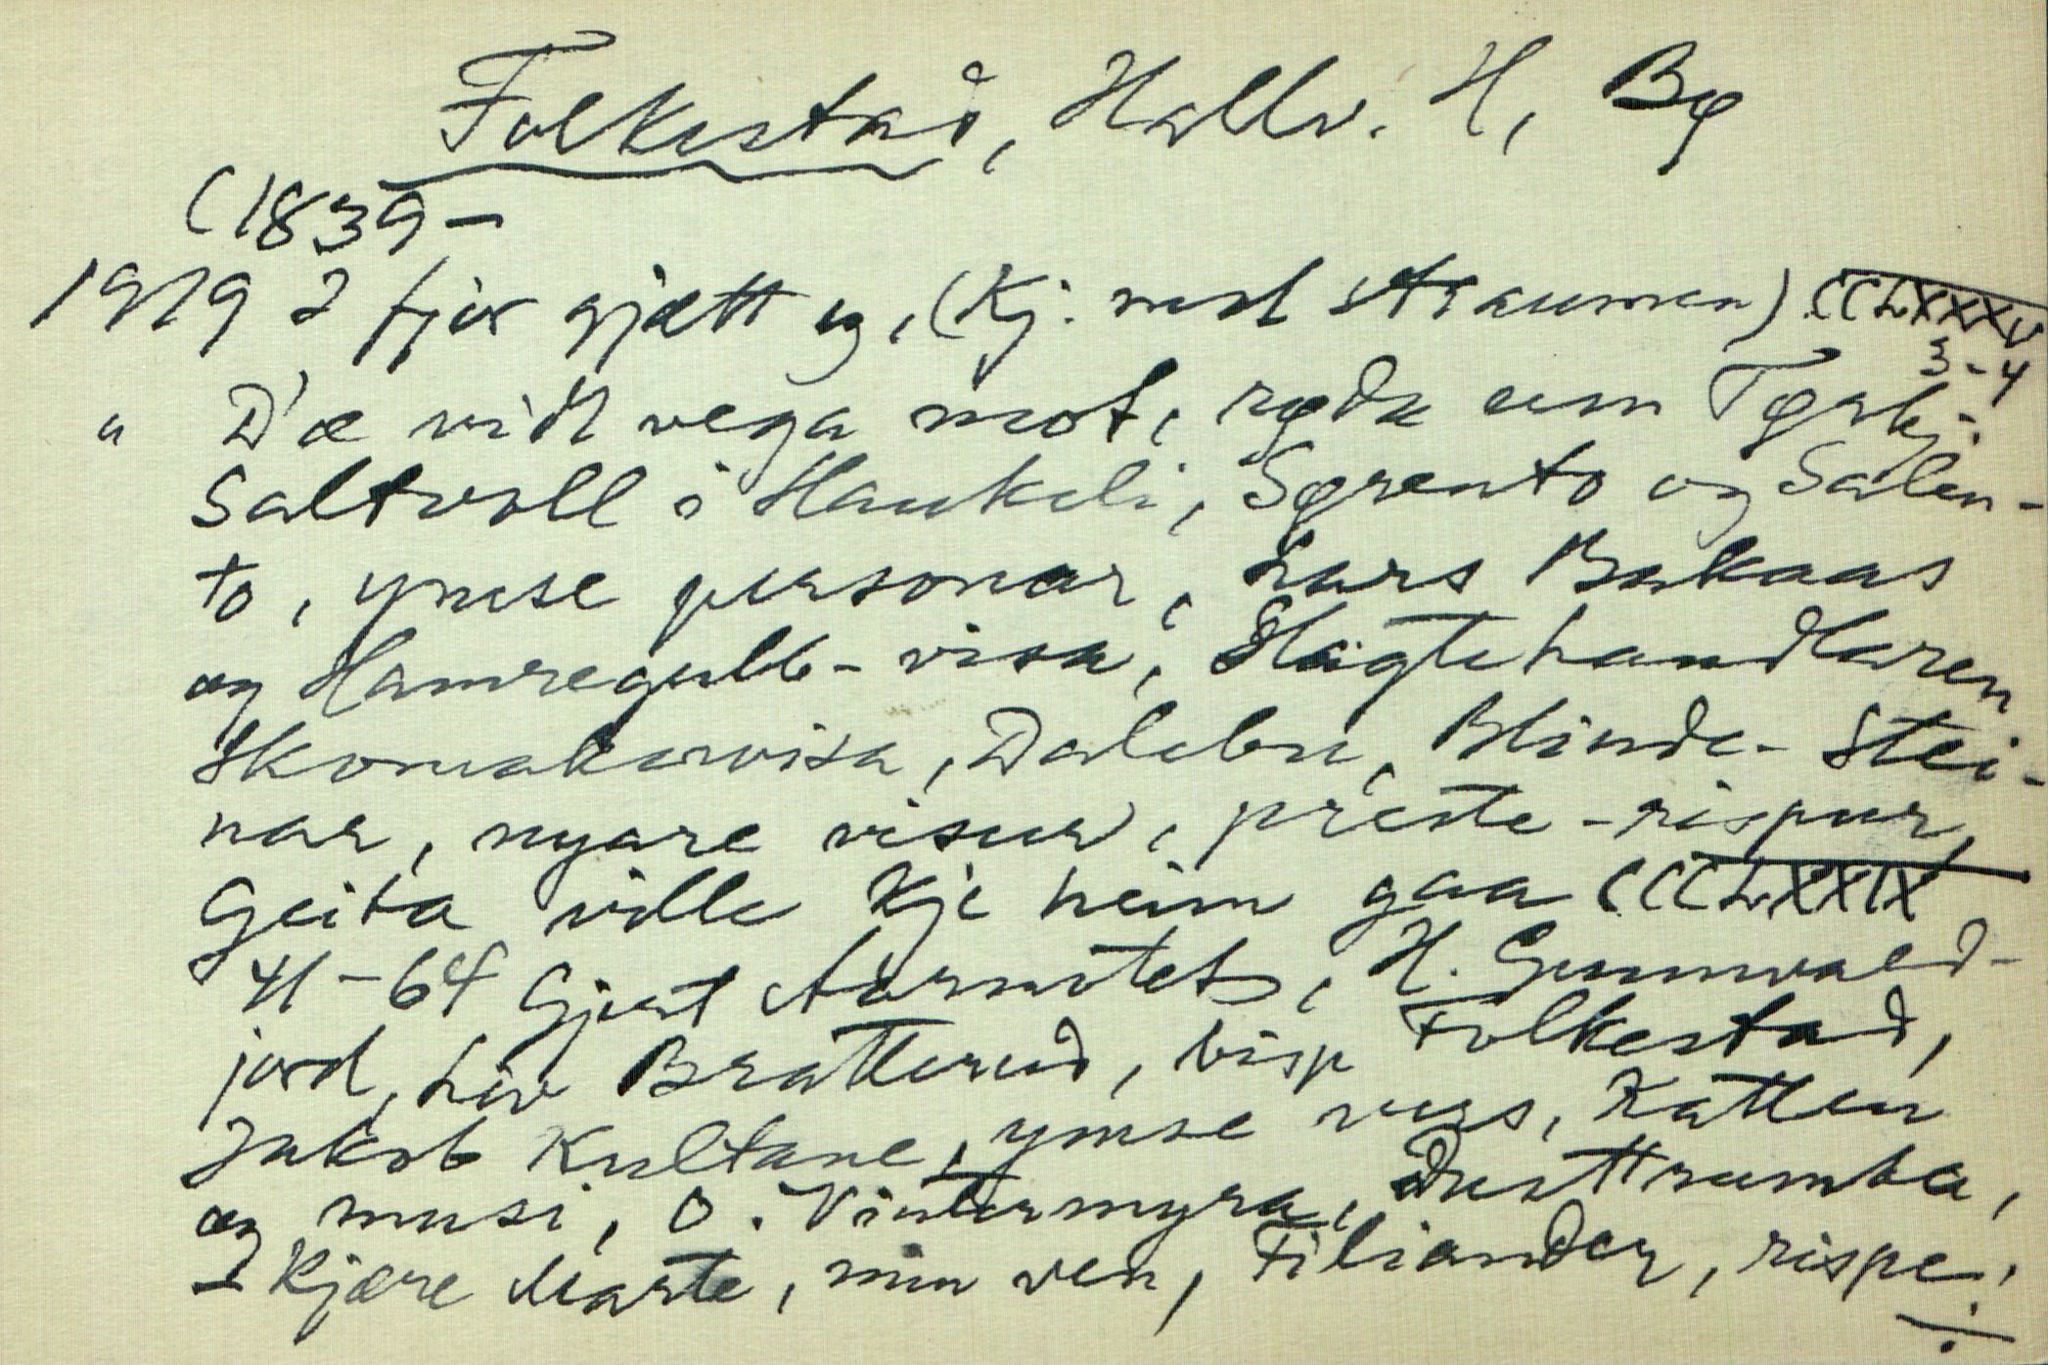 Folkestad, Hallv. H, Bø
(1839 –
1919 I fjor gjætt eg, (Kj. med straumen) CCLXXXV
3-4
" D'æ vidt vega mot, røda um Tørkj.
Saltvoll i Haukeli, Sørento og Salen-
to, ymse personar, Lars Bakaas
og Hamregubb-visa, Slagtehandlaren
Skomakarvisa, Dalebu, Blinde-Stei-
nar, nyare visur, preste-rispur,
Geita ville kje heim gaa CCCLXXIX
41-64 Gjert, H. Gunnvald-
jord, Liv Bratterud, bisp Folkestad,
Jakob Kultane, ymse vers, Katten
og musi, O. Vintermyra, Dusttrumba,
Kjære Marte, min ven, Filiander, rispe.
÷